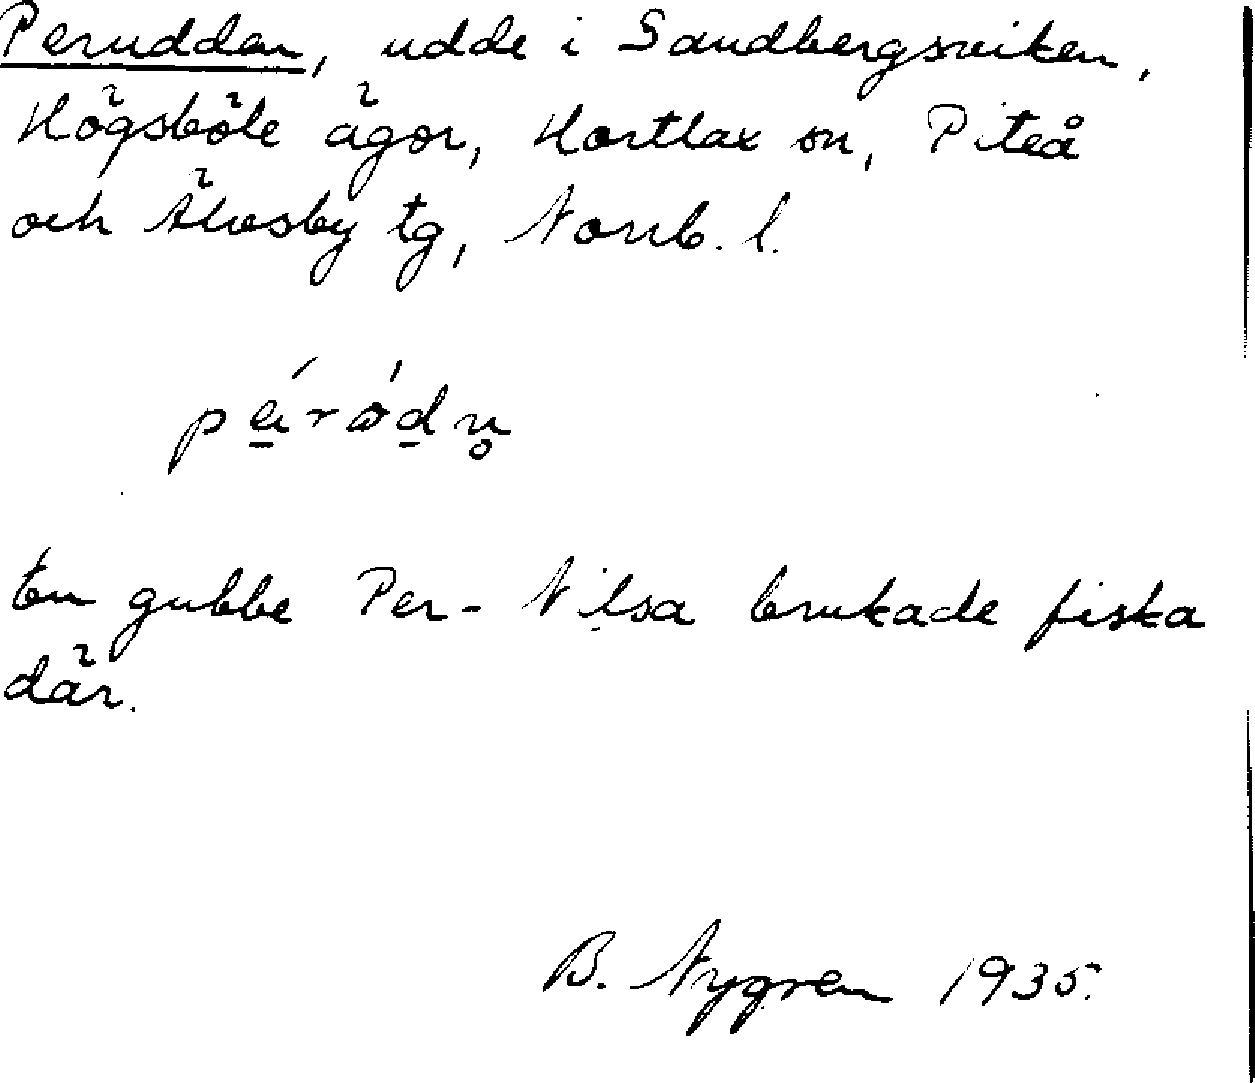 Perudden, udde i Sandbergsviken,
Högsböle ägor, Hortlax sn, Piteå
och Älvsby tg, Norrb. l.
En gubbe Per-Nilsa brukade fiska
där.
B. Nygren 1935.